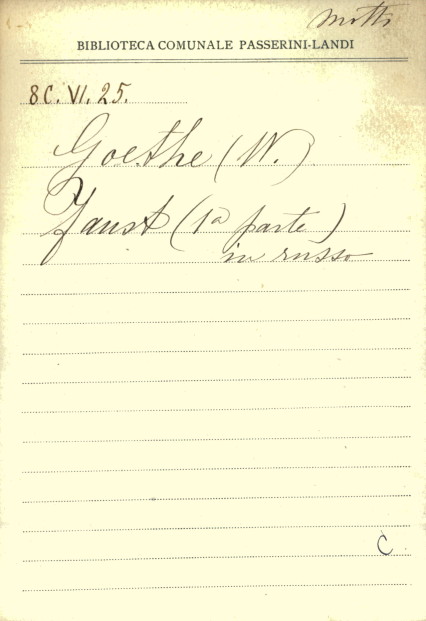 BIBLIOTECA COMUNALE PASSERINI-LANDI
8C. VI. 25.
Goethe (W.)
Faust (1a parte)
in russo
C